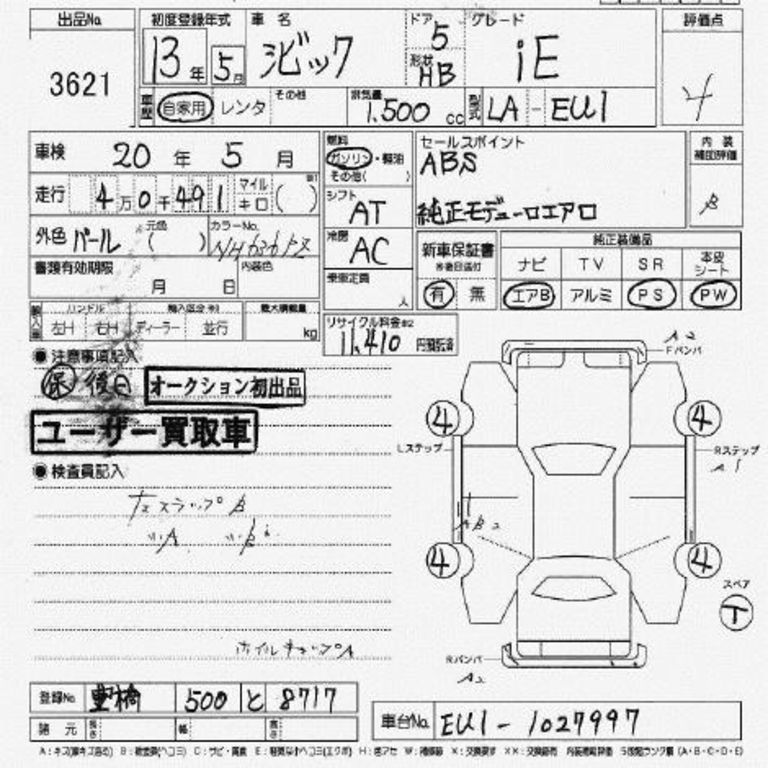 出品No. 初度登録年式 車名 ドア グレード 評価点
3621 13年 5月 シビック 5 形状 HB iE 4
車歴 自家用 レンタ その他 排気量 1,500 cc 型式 LA - EU1
車検 20年 5月 燃料 ガソリン・軽油 その他( ) セールスポイント 内装補助評価
ABS
走行 4万0千491 マイル キロ ( ) シフト AT 純正モデューロエアロ B
外色 パール 元色 ( ) カラーNo. 冷房 AC 新車保証書 純正装備品
※後日送付 ナビ TV SR 本皮シート
書類有効期限 月 日 内装色 乗車定員 人 有 無 エアB アルミ PS PW
輸入車 ハンドル 左H 右H ディーラー 並行 最大積載量 kg
リサイクル料金※2 11,410 円預託済
注意事項記入
保 後日 オークション初出品
ユーザー買取車
検査員記入
ホイルキャップA
A2
Fバンパ
4 4
Lステップ Rステップ
A1
4 4
スペア
T
Rバンパ
A2
登録No. 豊橋 500 と 8717
諸元 長さ 幅 高さ
車台No. EU1-1027997